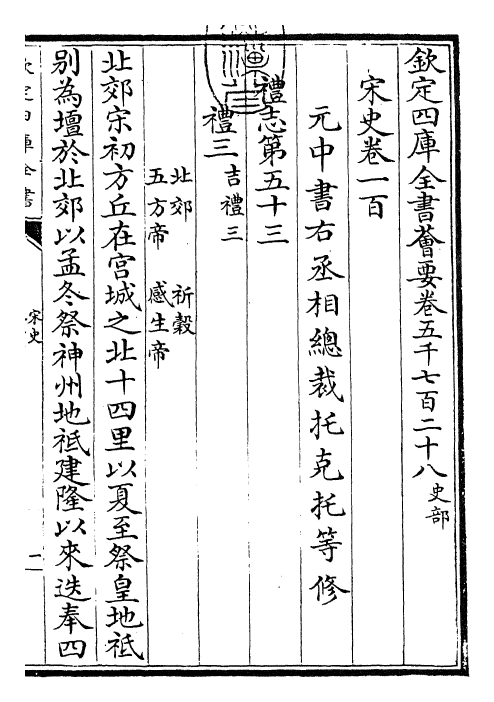 欽定四庫全書薈要卷五千七百二十八史部
宋史卷一百
元中書右丞相總裁托克托等修
禮志第五十三
禮三吉禮三
北郊　祈穀
五方帝　感生帝
北郊宋初方丘在宫城之北十四里以夏至祭皇地祗
别為壇於北郊以孟冬祭神州地祗建隆以來迭奉四
欽定四庫全書
宋史